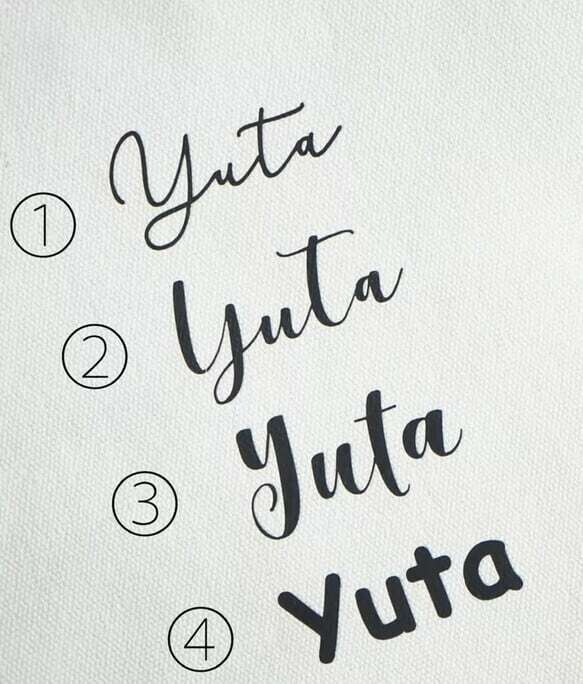 ① Yuta
② Yuta
③ Yuta
④ Yuta